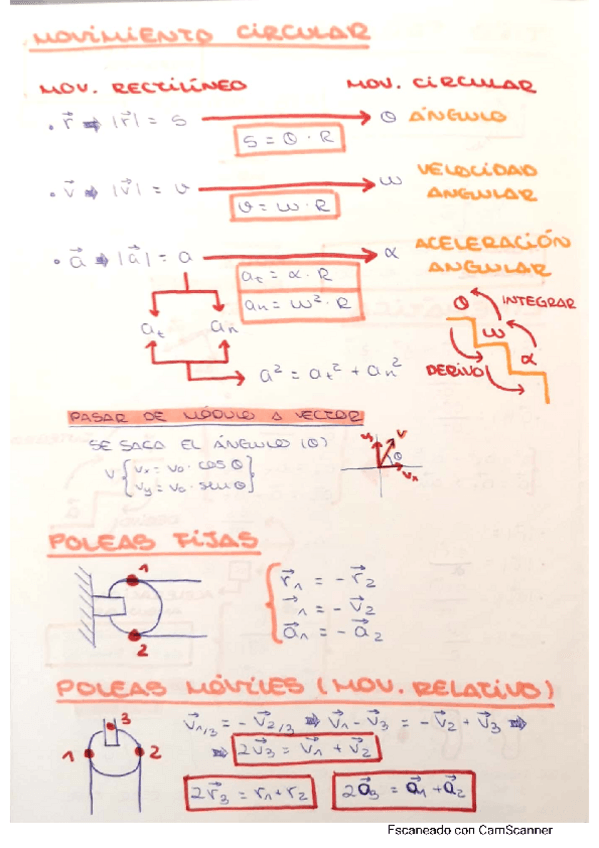 MOVIMIENTO CIRCULAR
MOV. RECTILÍNEO MOV. CIRCULAR
• r⃗ ⇒ |r⃗| = s → θ ÁNGULO
s = θ · R
• v⃗ ⇒ |v⃗| = v → ω VELOCIDAD ANGULAR
v = ω · R
• a⃗ ⇒ |a⃗| = a → α ACELERACIÓN ANGULAR
at = α · R
an = ω² · R
at an
a² = at² + an²
θ INTEGRAR
ω
DERIVO α
PASAR DE MÓDULO A VECTOR
SE SACA EL ÁNGULO (θ)
v { vx = v0 · cos θ
vy = v0 · sen θ }
vy v
θ
vx
POLEAS FIJAS
1
2
r⃗1 = - r⃗2
v⃗1 = - v⃗2
a⃗1 = - a⃗2
POLEAS MÓVILES (MOV. RELATIVO)
3
1 2
v⃗1/3 = - v⃗2/3 ⇒ v⃗1 - v⃗3 = - v⃗2 + v⃗3 ⇒
⇒ 2v⃗3 = v⃗1 + v⃗2
2r⃗3 = r1 + r2 2a⃗3 = a⃗1 + a⃗2
Escaneado con CamScanner